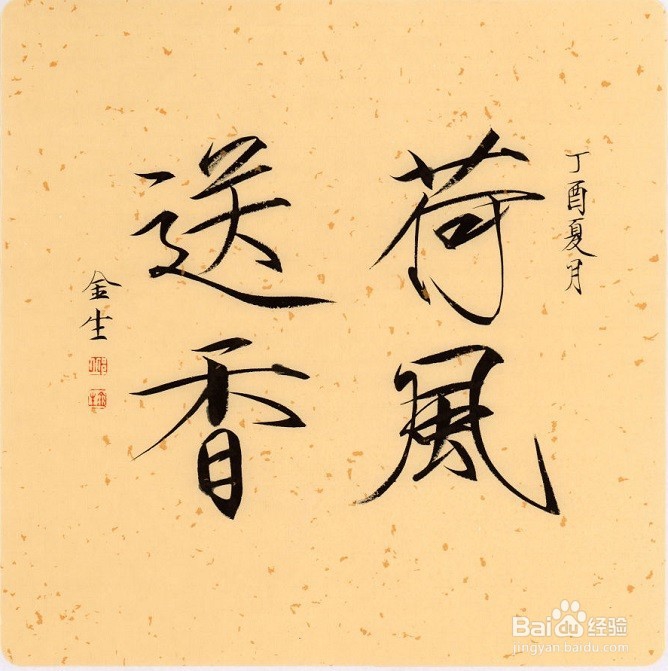 丁酉夏月
荷風
送香
金生
Baidu经验
jingyan.baidu.com